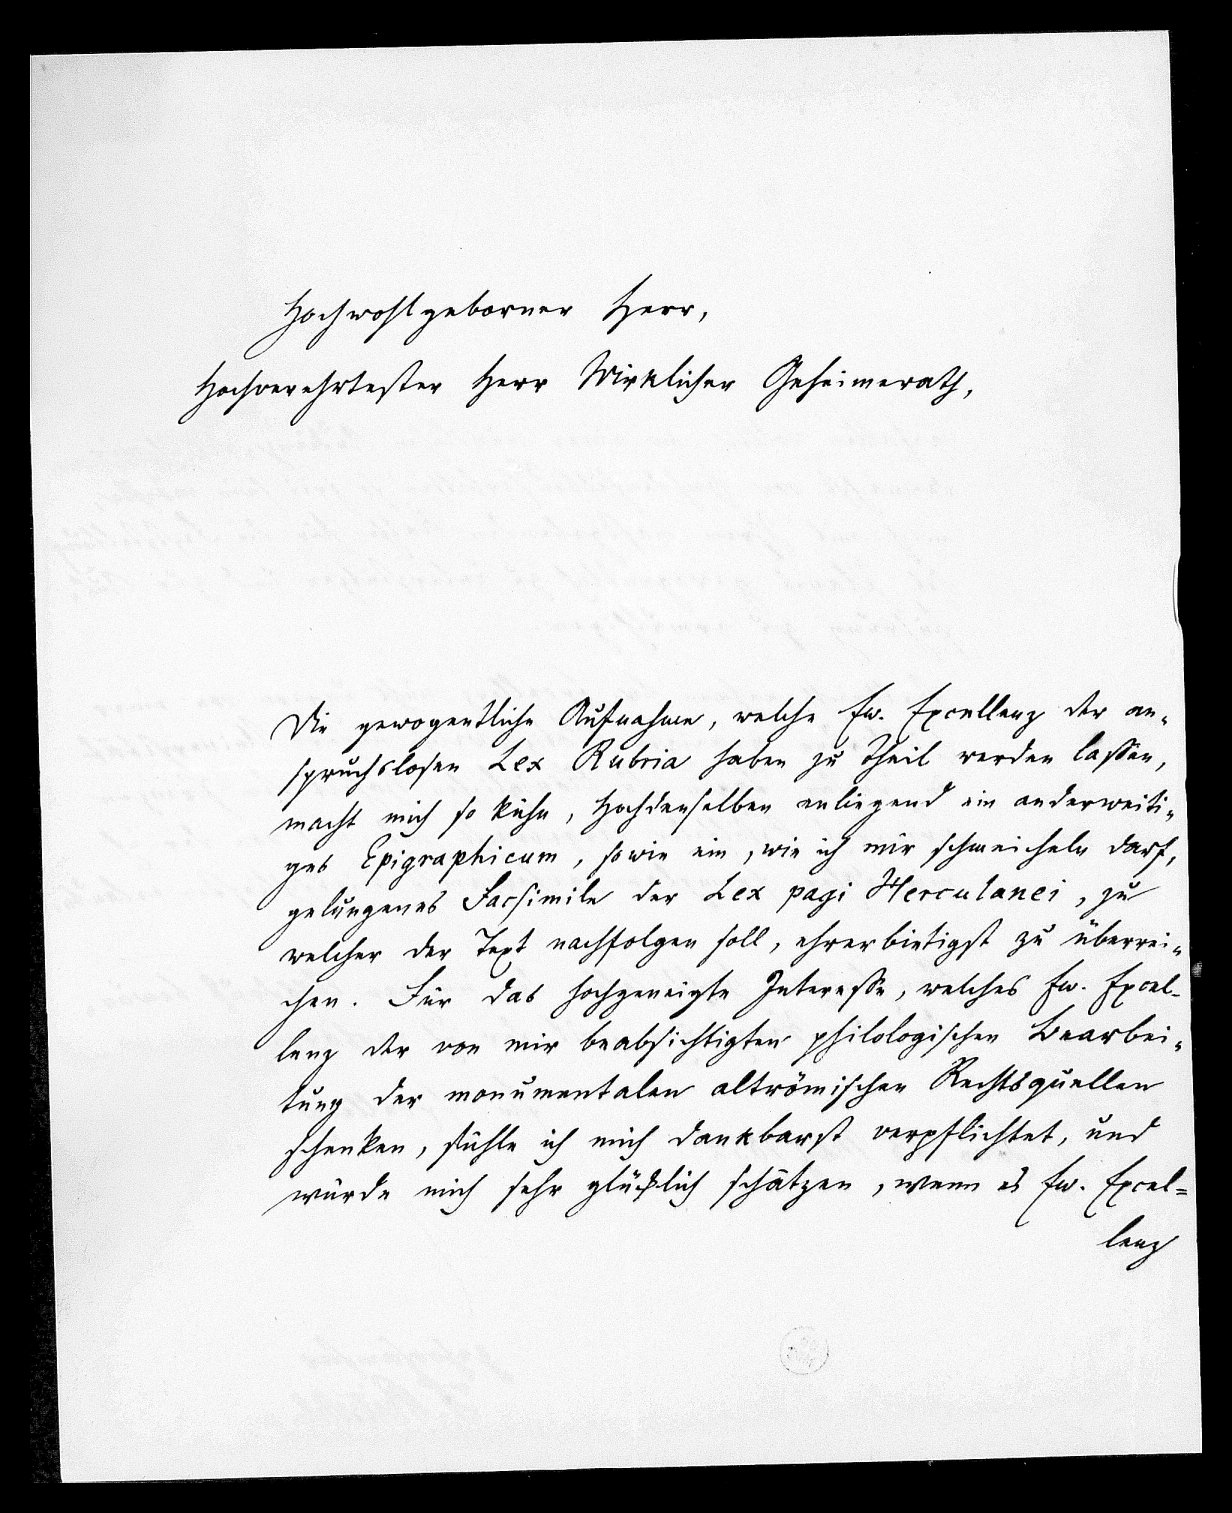 Hochwohlgeborner Herr,
Hochverehrtester Herr Wirklicher Geheimerath,
Die gewogentliche Aufnahme, welche Ew. Excellenz der an-
spruchslosen Lex Rubria haben zu Theil werden lassen,
macht mich so kühn, Hochdenselben anliegend ein anderweiti-
ges Epigraphicum, sowie ein, wie ich mir schmeicheln darf,
gelungenes Facsimile der Lex pagi Herculanei, zu
welcher der Text nachfolgen soll, ehrerbietigst zu überrei-
chen. Für das hochgeneigte Interesse, welches Ew. Excel-
lenz der von mir beabsichtigten philologischen Bearbei-
tung der monumentalen altrömischen Rechtsquellen
schenken, fühle ich mich dankbarst verpflichtet, und
würde mich sehr glücklich schätzen, wenn es Ew. Excel=
lenz